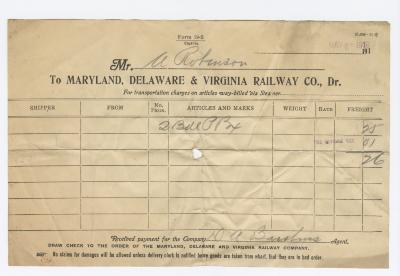 Form 39-B
Mr. A Robinson
191
To MARYLAND, DELAWARE & VIRGINIA RAILWAY CO., Dr.
For transportation charges on articles way-billed via Str.
SHIPPER FROM No. Pkgs. ARTICLES AND MARKS WEIGHT RATE FREIGHT
2 Bdl P Bx 25
01
26
Received payment for the Company, Agent.
DRAW CHECK TO THE ORDER OF THE MARYLAND, DELAWARE AND VIRGINIA RAILWAY COMPANY.
No claims for damages will be allowed unless delivery clerk is notified before goods are taken from wharf, that they are in bad order.